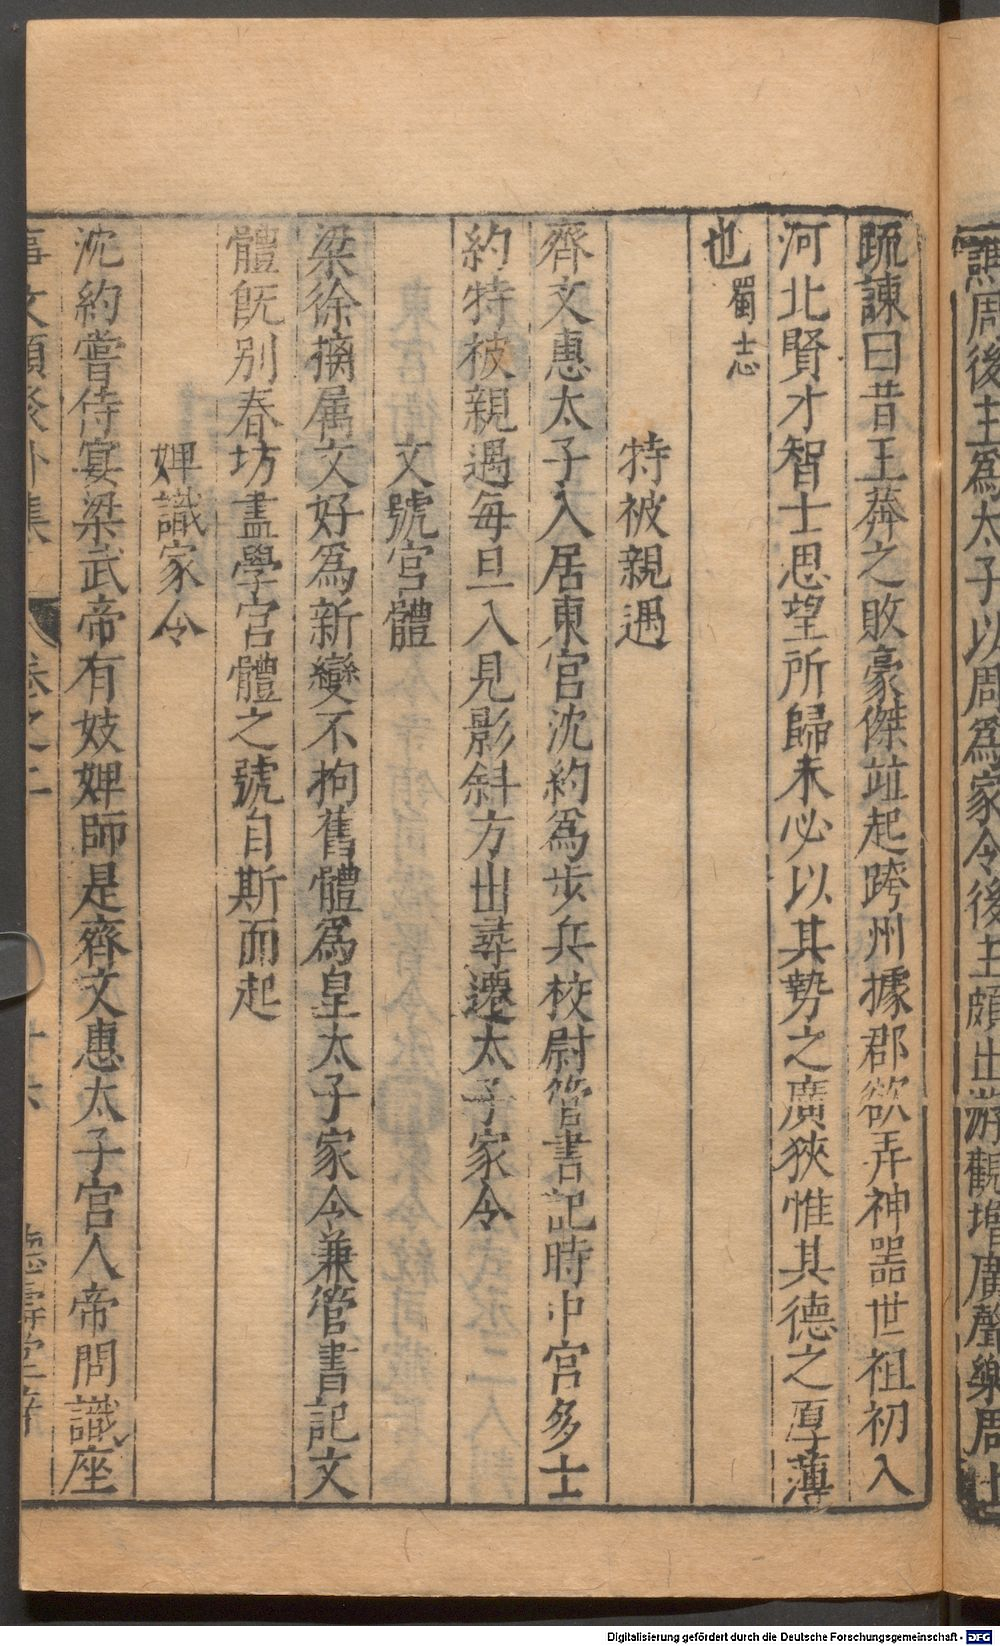 譙周後主爲太子以周爲家令後主頗出游觀增廣聲樂周上
疏諫曰昔王莽之敗豪傑竝起跨州據郡欲弄神器世祖初入
河北賢才智士思望所歸未必以其勢之廣狹惟其德之厚薄
也蜀志
特被親遇
齊文惠太子入居東宮沈約爲步兵校尉管書記時中宮多士
約特被親遇每旦入見影斜方出尋遷太子家令
文號宮體
梁徐摛属文好爲新變不拘舊體爲皇太子家令兼管書記文
體旣别春坊盡學宮體之號自斯而起
婢識家令
沈約嘗侍宴梁武帝有妓婢師是齊文惠太子宮人帝問識座
事文類聚外集 卷之二 十六 德壽堂梓
Digitalisierung gefördert durch die Deutsche Forschungsgemeinschaft - DFG